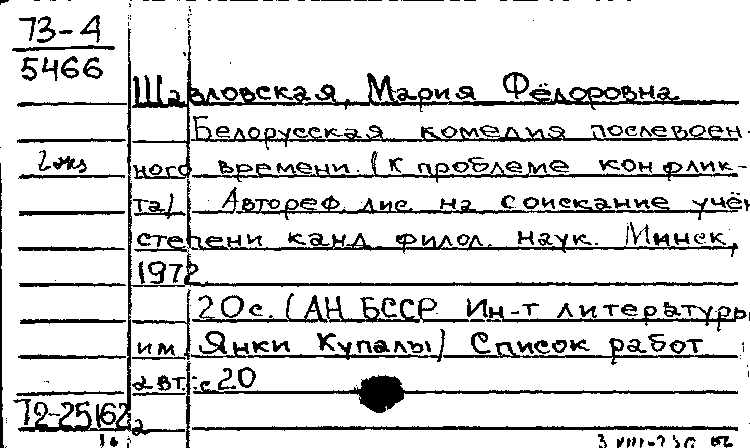 73-4
5466
Шавловская, Мария Фёдоровна
Белорусская комедия послевоен-
2 экз ного времени. (К проблеме конфлик-
та). Автореф. дис. на соискание учён
степени канд. филол. наук. Минск,
1972
20 с. (АН БССР. Ин-т литературы
им. Янки Купалы) Список работ
авт.: с 20
72-25162